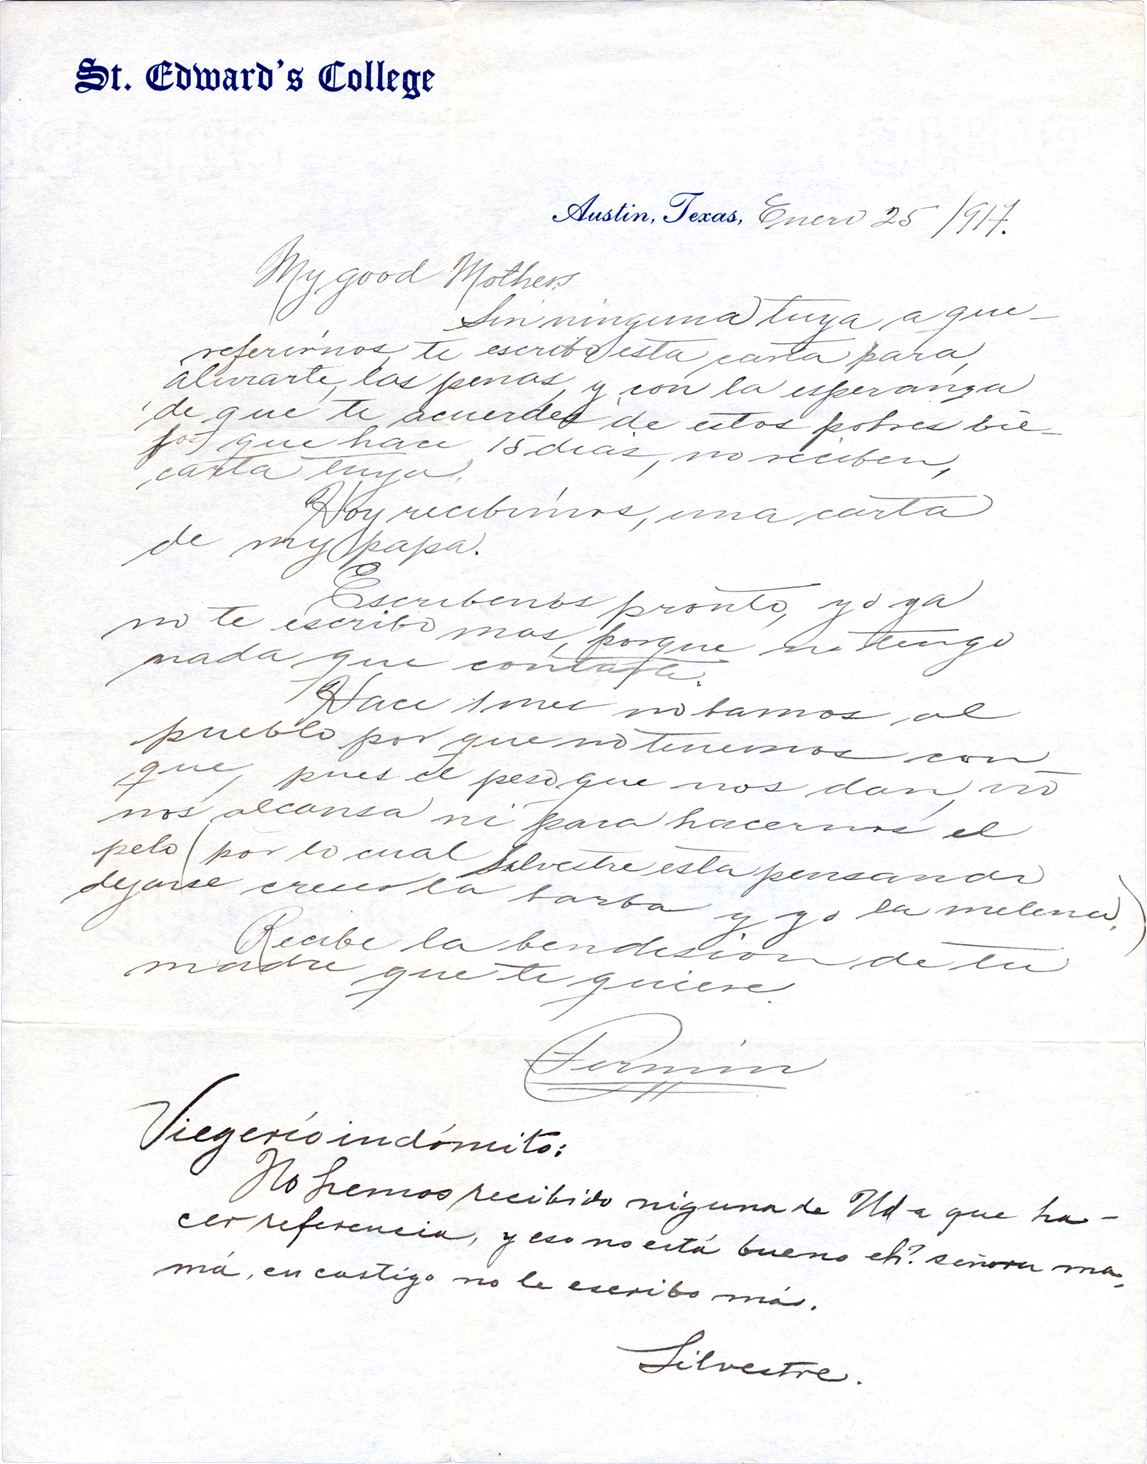 St. Edward's College
Austin, Texas, Enero 25/917.
My good Mothers.
Sin ninguna tuya a que
referirnos, te escribo esta carta para,
alivrarte, las penas, y con la esperanza
de que te acuerdes de estos pobres bie-
jos que hace 15 dias, no reciben,
carta tuya.
Hoy recibimos, una carta
de my papa.
Escribenos pronto, yo ya
no te escribo mas, porque no tengo
nada que contarte.
Hace 1 mes no bamos al
pueblo por que no tenemos con
que, pues el peso que nos dan, no
nos alcansa ni para hacernos el
pelo (por lo cual Silvestre esta pensando
dejarse creser la barba y yo la melena.)
Recibe la bendision de tu
madre que te quiere.
Fermin
Viegerío indómito:
No hemos recibido niguna de Ud a que ha-
cer referencia, y eso no está bueno eh? señora ma-
má, en castigo no le escribo más.
Silvestre.